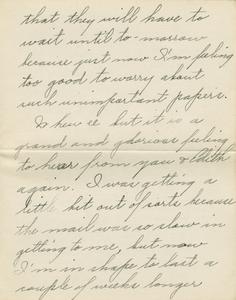 that they will have to
wait until to-morrow
because just now I'm feeling
too good to worry about
such unimportant papers.
Whew but it is a
grand and glorious feeling
to hear from you & Edith
again. I was getting a
little bit out of sorts because
the mail was so slow in
getting to me, but now
I'm in shape to last a
couple of weeks longer